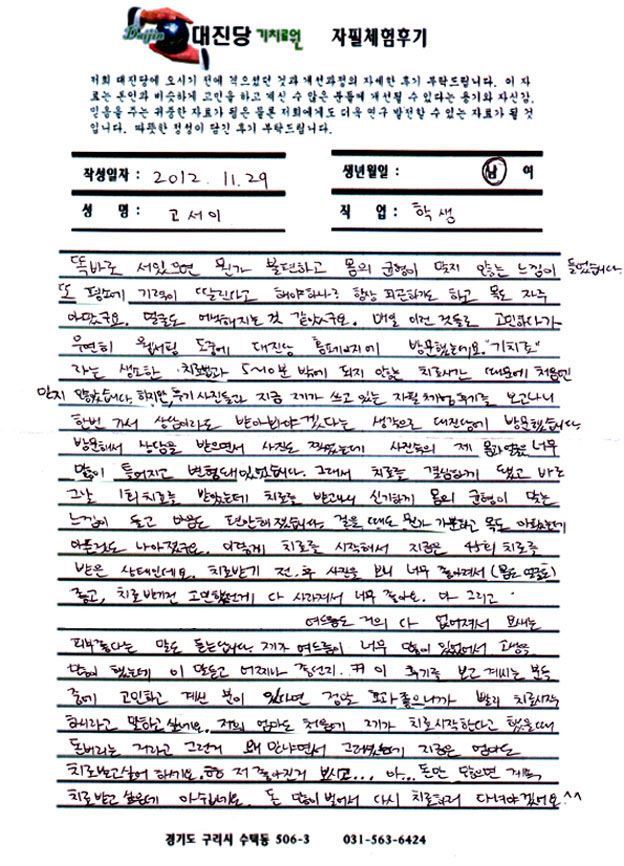 Daijin 대진당 기치료원 자필체험후기
저희 대진당에 오시기 전에 격으셨던 것과 개선과정의 자세한 후기 부탁드립니다. 이 자
료는 본인과 비슷하게 고민을 하고 계신 수 많은 분들께 개선될 수 있다는 용기와 자신감,
믿음을 주는 귀중한 자료가 됨은 물론 저희에게도 더욱 연구 발전할 수 있는 자료가 될 것
입니다. 따뜻한 정성이 담긴 후기 부탁드립니다.
작성일자 : 2012. 11. 29 생년월일 : 남 여
성 명 : 고서이 직 업 : 학생
똑바로 서있으면 뭔가 불편하고 몸의 균형이 맞지 않는 느낌이 들었습니다.
또 평소에 기력이 딸린다고 해야하나? 항상 피곤하기도 하고 목도 자주
아팠구요. 얼굴도 비대칭해지는것 같았구요. 매일 이런 것들로 고민하다가
우연히 웹서핑 도중에 대진당 홈페이지에 방문했는데요. "기치료"
라는 생소한 치료법과 5~10분 밖에 되지 않는 치료시간 때문에 처음엔
믿지 않았습니다. 하지만, 후기 사진들과 지금 제가 쓰고 있는 자필체험후기를 보고나니
한번 가서 상담이라도 받아봐야겠다는 생각으로 대진당에 방문했습니다.
방문해서 상담을 받으면서 사진도 찍었는데 사진속의 제 몸과 얼굴은 너무
많이 틀어지고 변형돼있었습니다. 그래서 치료를 결심하게 됐고 바로
그날 1회치료를 받았는데 치료를 받고나니 신기하게 몸의 균형이 맞는
느낌이 들고 마음도 편안해졌습니다. 걸을때도 뭔가 가뿐하고 목도 아팠는데
아픈것도 나아졌구요. 이렇게 치료를 시작해서 지금은 4회 치료를
받은 상태인데요. 치료받기 전, 후 사진을 보니 너무 좋아져서 (몸도 얼굴도)
좋고, 치료받기전 고민했던게 다 사라져서 너무 좋아요. 아 그리고
여드름도 거의 다 없어져서 요새는
피부좋다는 말도 듣는답니다. 제가 여드름이 너무 많이 있었어서 고생을
많이 했는데 이 말듣고 어찌나 좋던지. ㅋㅋ 이 후기를 보고 계시는 분들
중에 고민하고 계신 분이 있다면 정말 효과좋으니까 빨리 치료시작
하시라고 말하고 싶어요. 저희 엄마도 처음에 제가 치료시작한다고 했을때
돈버리는 거라고 그런거 왜 믿냐면서 그러셨는데 지금은 엄마도
치료받고싶어 하세요. 저 좋아진거 보시고... 아... 돈만 많으면 계속
치료받고 싶은데 아쉬워요. 돈 많이 벌어서 다시 치료하러 다녀야겠어요^^
경기도 구리시 수택동 506-3 031-563-6424